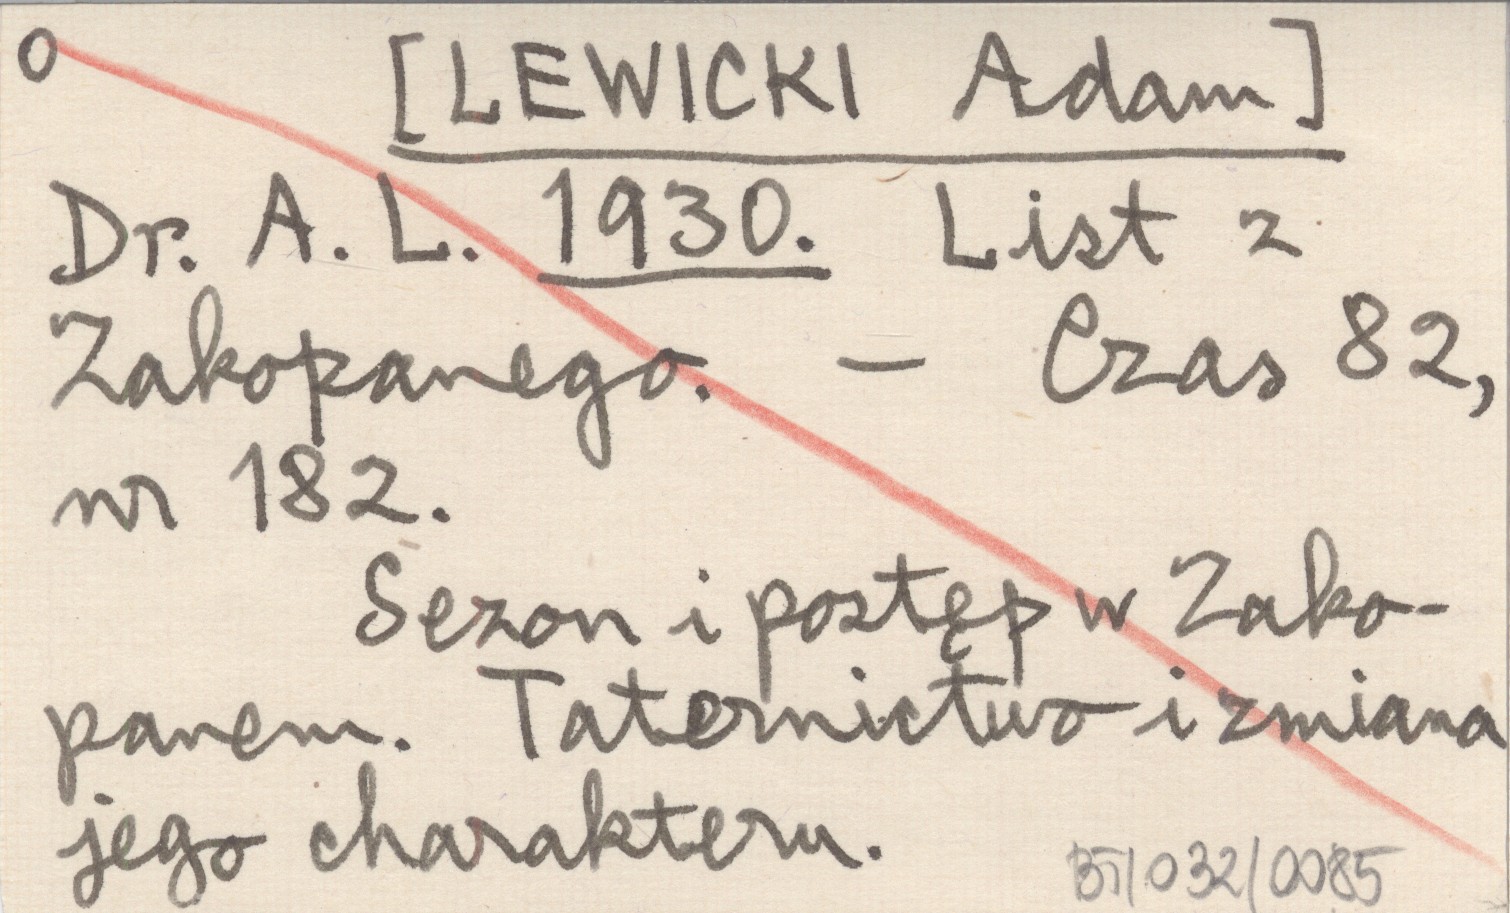 o [LEWICKI Adam]
Dr. A. L. 1930. List z
Zakopanego. — Czas 82,
nr 182.
Sezon i postęp w Zako-
panem. Taternictwo i zmiana
jego charakteru.
BT/032/0085